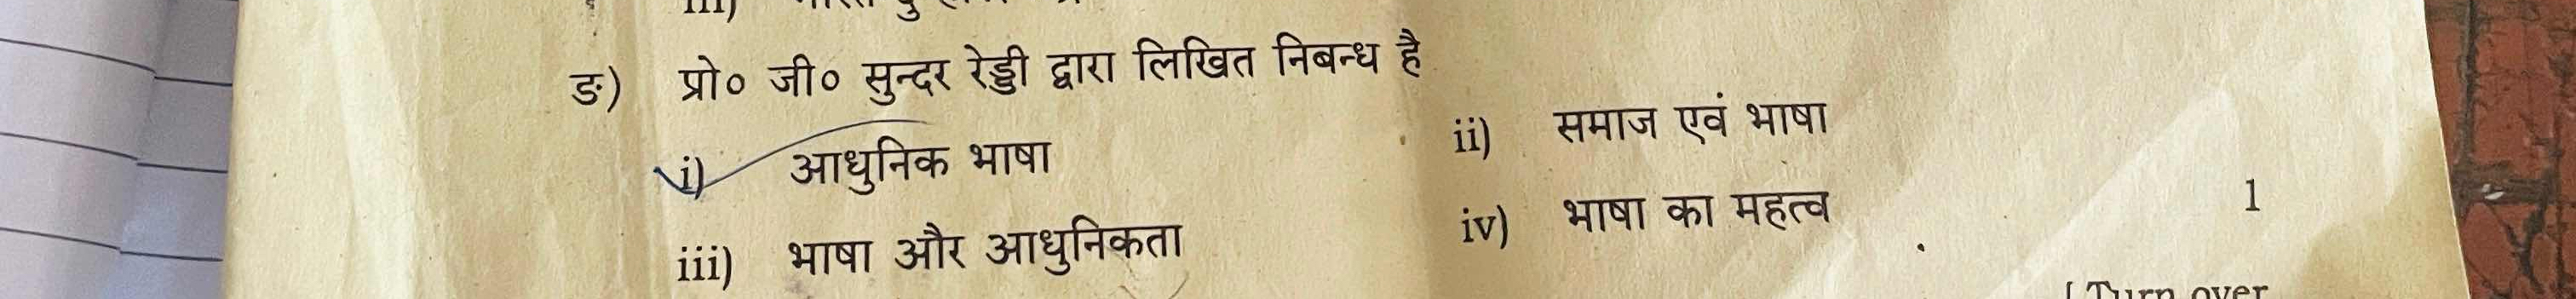 iii)
ङ) प्रो० जी० सुन्दर रेड्डी द्वारा लिखित निबन्ध है
i) आधुनिक भाषा
ii) समाज एवं भाषा
iii) भाषा और आधुनिकता
iv) भाषा का महत्व
1
[ Turn over